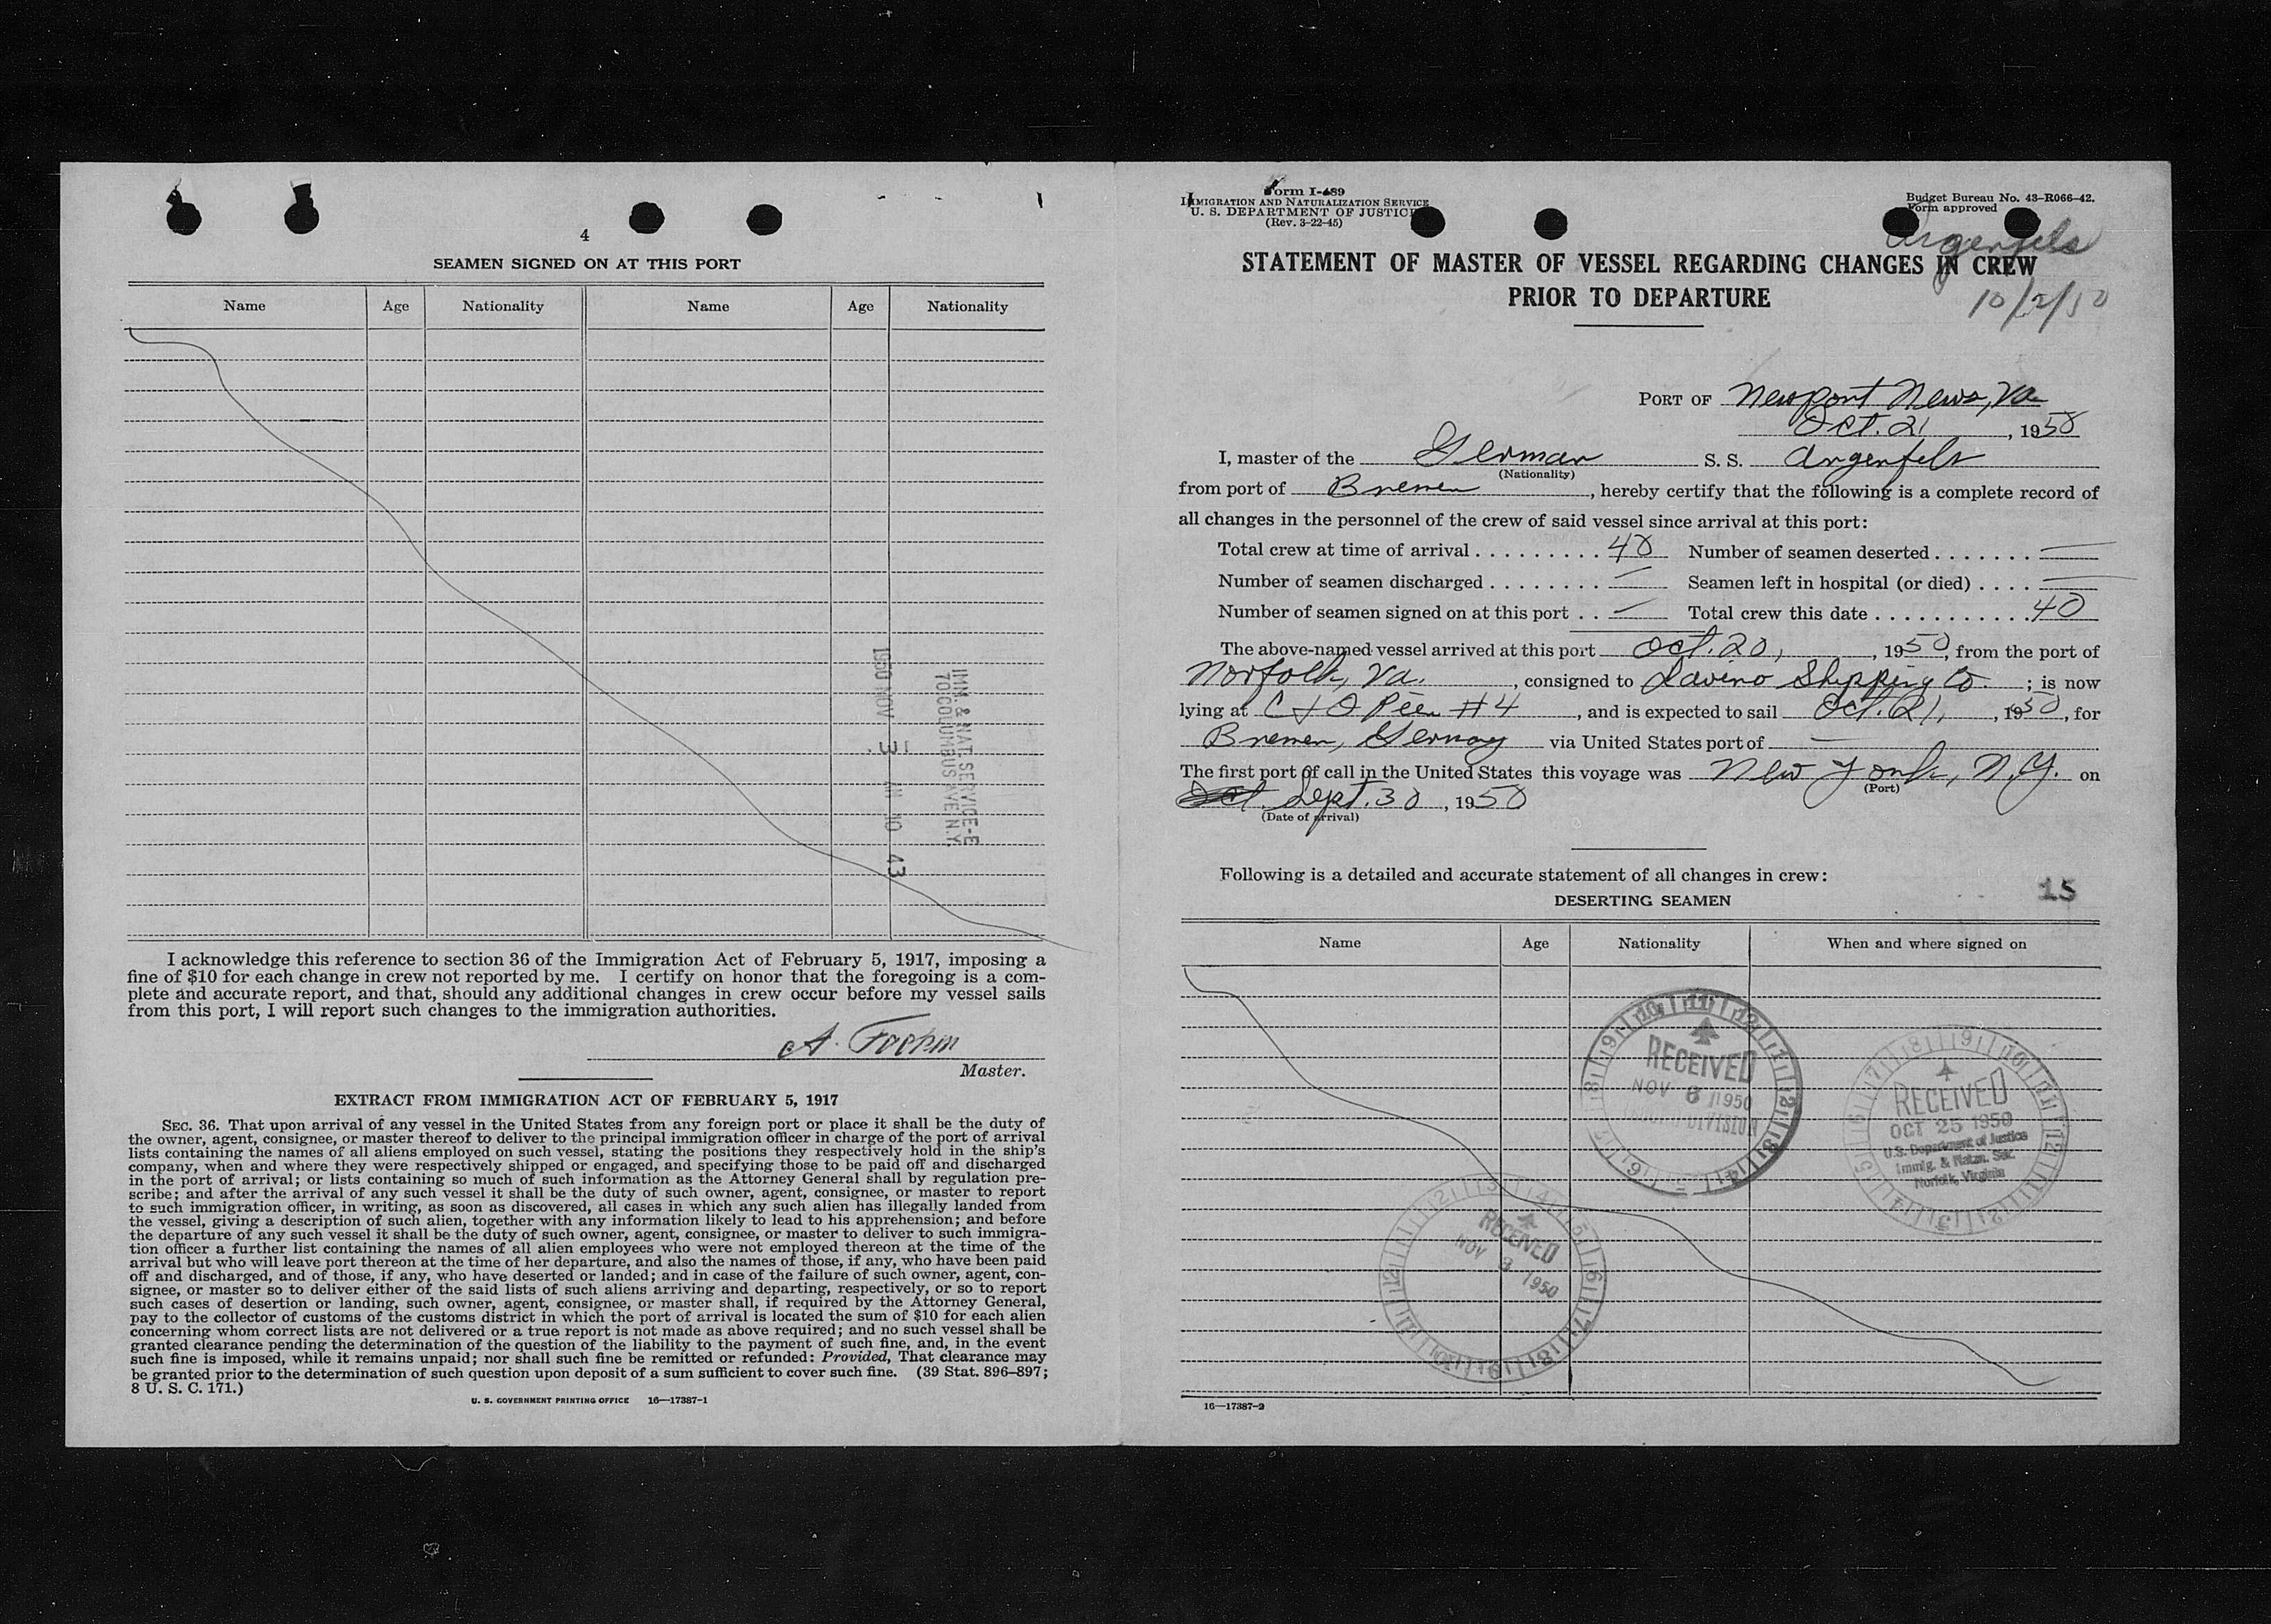 4
SEAMEN SIGNED ON AT THIS PORT
Name Age Nationality Name Age Nationality
IMM. & NAT. SERVICE-E
70 COLUMBUS AVE N.Y.
1950 NOV 3 AM 10 43
I acknowledge this reference to section 36 of the Immigration Act of February 5, 1917, imposing a
fine of $10 for each change in crew not reported by me. I certify on honor that the foregoing is a com-
plete and accurate report, and that, should any additional changes in crew occur before my vessel sails
from this port, I will report such changes to the immigration authorities.
A.
Master.
EXTRACT FROM IMMIGRATION ACT OF FEBRUARY 5, 1917
SEC. 36. That upon arrival of any vessel in the United States from any foreign port or place it shall be the duty of
the owner, agent, consignee, or master thereof to deliver to the principal immigration officer in charge of the port of arrival
lists containing the names of all aliens employed on such vessel, stating the positions they respectively hold in the ship's
company, when and where they were respectively shipped or engaged, and specifying those to be paid off and discharged
in the port of arrival; or lists containing so much of such information as the Attorney General shall by regulation pre-
scribe; and after the arrival of any such vessel it shall be the duty of such owner, agent, consignee, or master to report
to such immigration officer, in writing, as soon as discovered, all cases in which any such alien has illegally landed from
the vessel, giving a description of such alien, together with any information likely to lead to his apprehension; and before
the departure of any such vessel it shall be the duty of such owner, agent, consignee, or master to deliver to such immigra-
tion officer a further list containing the names of all alien employees who were not employed thereon at the time of the
arrival but who will leave port thereon at the time of her departure, and also the names of those, if any, who have been paid
off and discharged, and of those, if any, who have deserted or landed; and in case of the failure of such owner, agent, con-
signee, or master so to deliver either of the said lists of such aliens arriving and departing, respectively, or so to report
such cases of desertion or landing, such owner, agent, consignee, or master shall, if required by the Attorney General,
pay to the collector of customs of the customs district in which the port of arrival is located the sum of $10 for each alien
concerning whom correct lists are not delivered or a true report is not made as above required; and no such vessel shall be
granted clearance pending the determination of the question of the liability to the payment of such fine, and, in the event
such fine is imposed, while it remains unpaid; nor shall such fine be remitted or refunded: Provided, That clearance may
be granted prior to the determination of such question upon deposit of a sum sufficient to cover such fine. (39 Stat. 896–897;
8 U. S. C. 171.)
U. S. GOVERNMENT PRINTING OFFICE 16—17387-1
Form I-489
IMMIGRATION AND NATURALIZATION SERVICE
U. S. DEPARTMENT OF JUSTICE
(Rev. 3-22-45)
Budget Bureau No. 43-R066-42.
Form approved
Argenfels
10/2/50
STATEMENT OF MASTER OF VESSEL REGARDING CHANGES IN CREW
PRIOR TO DEPARTURE
PORT OF Newport News, Va
Oct. 21, 1950
I, master of the German S. S. Argenfels
(Nationality)
from port of Bremen, hereby certify that the following is a complete record of
all changes in the personnel of the crew of said vessel since arrival at this port:
Total crew at time of arrival 40 Number of seamen deserted —
Number of seamen discharged — Seamen left in hospital (or died) —
Number of seamen signed on at this port — Total crew this date 40
The above-named vessel arrived at this port Oct. 20, 1950, from the port of
Norfolk, Va., consigned to Lavino Shipping Co.; is now
lying at C & O Pier #4, and is expected to sail Oct. 21, 1950, for
Bremen, Germany via United States port of —
The first port of call in the United States this voyage was New York, N.Y. on
(Port)
Oct. Sept. 30, 1950
(Date of arrival)
Following is a detailed and accurate statement of all changes in crew:
15
DESERTING SEAMEN
Name Age Nationality When and where signed on
RECEIVED
NOV 6 1950
DIVISION
RECEIVED
OCT 25 1950
U.S. Department of Justice
Immig. & Natzn. Ser.
Norfolk, Virginia
RECEIVED
NOV 3 1950
16—17387-2